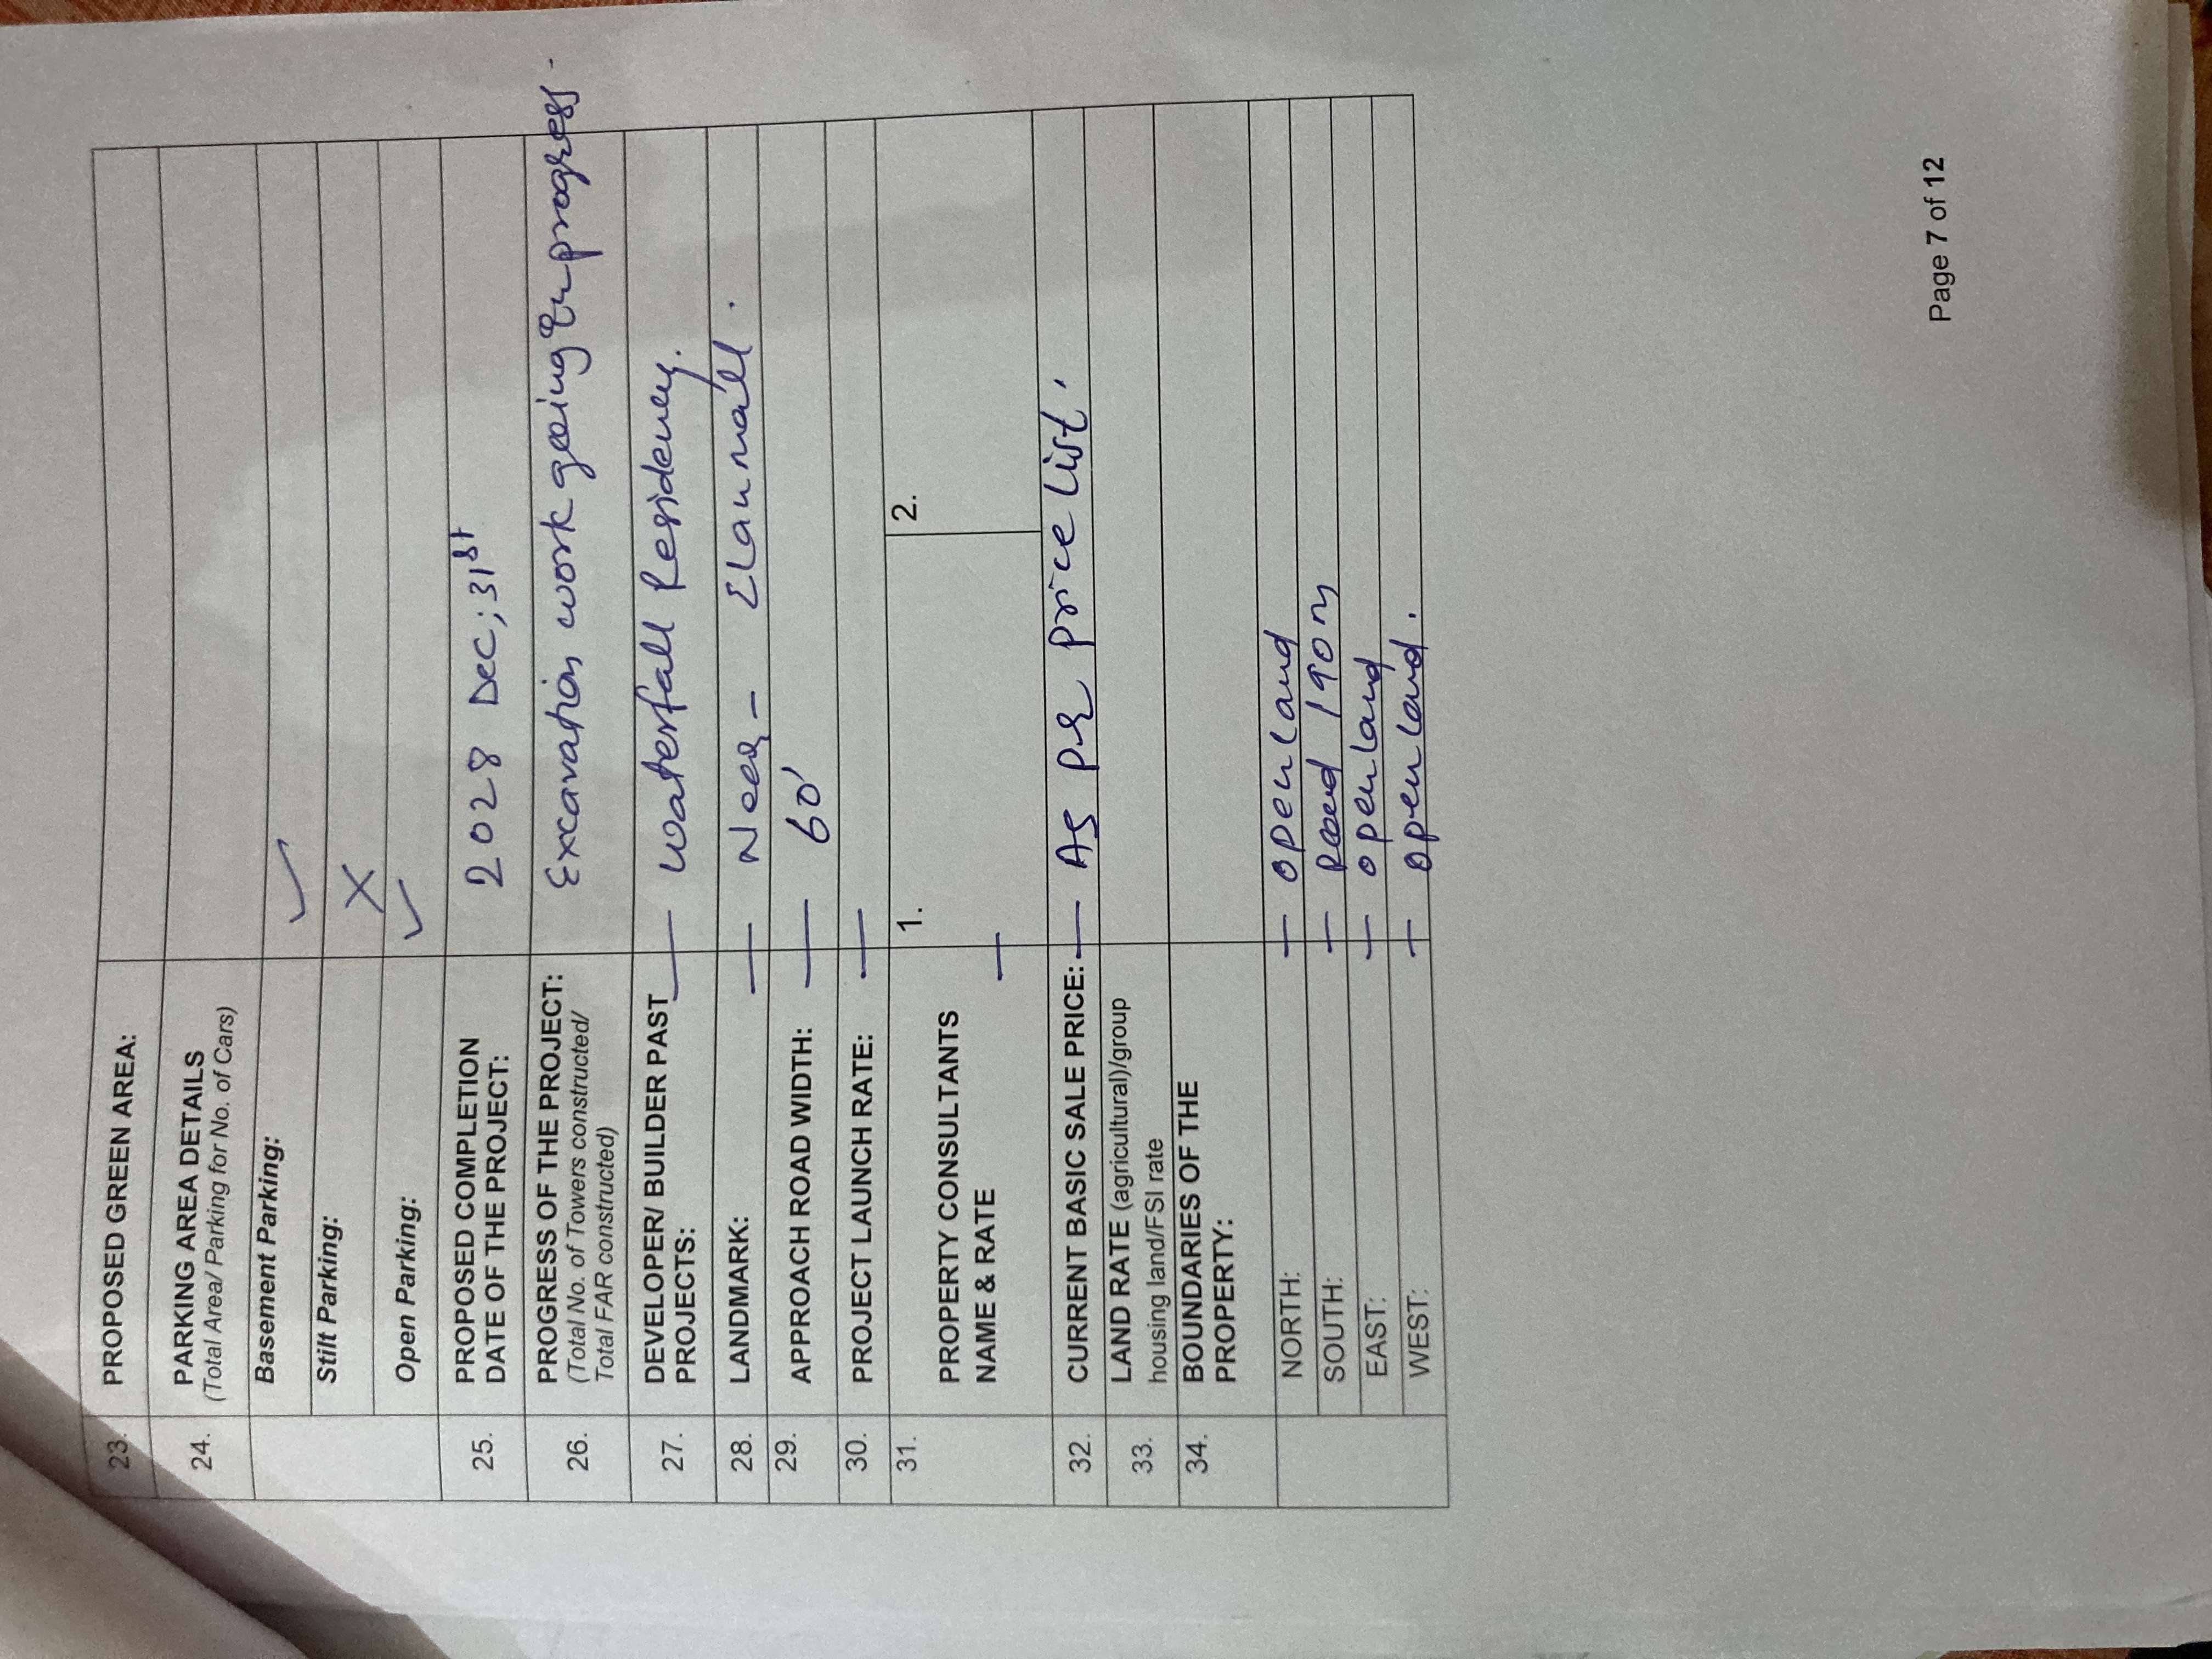 23. PROPOSED GREEN AREA:
24. PARKING AREA DETAILS
(Total Area/ Parking for No. of Cars)
Basement Parking: ✓
Stilt Parking: X
Open Parking: ✓
25. PROPOSED COMPLETION
DATE OF THE PROJECT: 2028 Dec; 31st
26. PROGRESS OF THE PROJECT:
(Total No. of Towers constructed/
Total FAR constructed)
Excavation work going in progress.
27. DEVELOPER/ BUILDER PAST
PROJECTS: — Waterfall Residency.
28. LANDMARK: — Near -
29. APPROACH ROAD WIDTH: — 60'
30. PROJECT LAUNCH RATE: —
31. PROPERTY CONSULTANTS
NAME & RATE —
1.
2.
32. CURRENT BASIC SALE PRICE: — As per price list.
33. LAND RATE (agricultural)/group
housing land/FSI rate
34. BOUNDARIES OF THE
PROPERTY:
NORTH: — open land
SOUTH: — Road
EAST: — open land
WEST: — open land.
Page 7 of 12